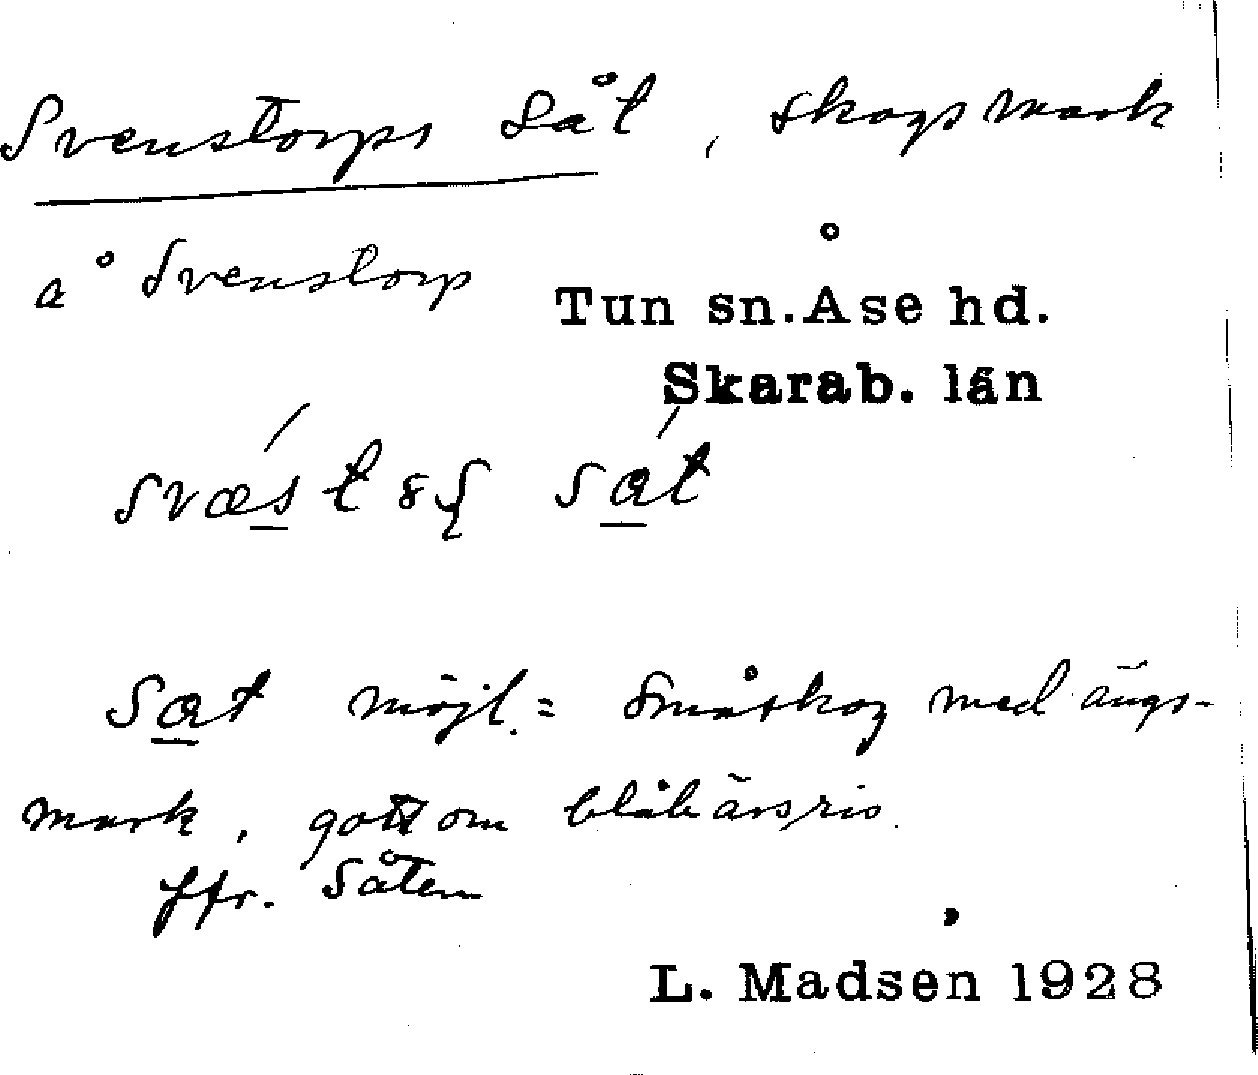 Svenstorps Såt, skogsmark
å Svenstorp
Tun sn. Åse hd.
Skarab. län
sat
Sat möjl. = Småskog med ängs-
mark, gott om blåbärsris.
Jfr. Såten
L. Madsen 1928